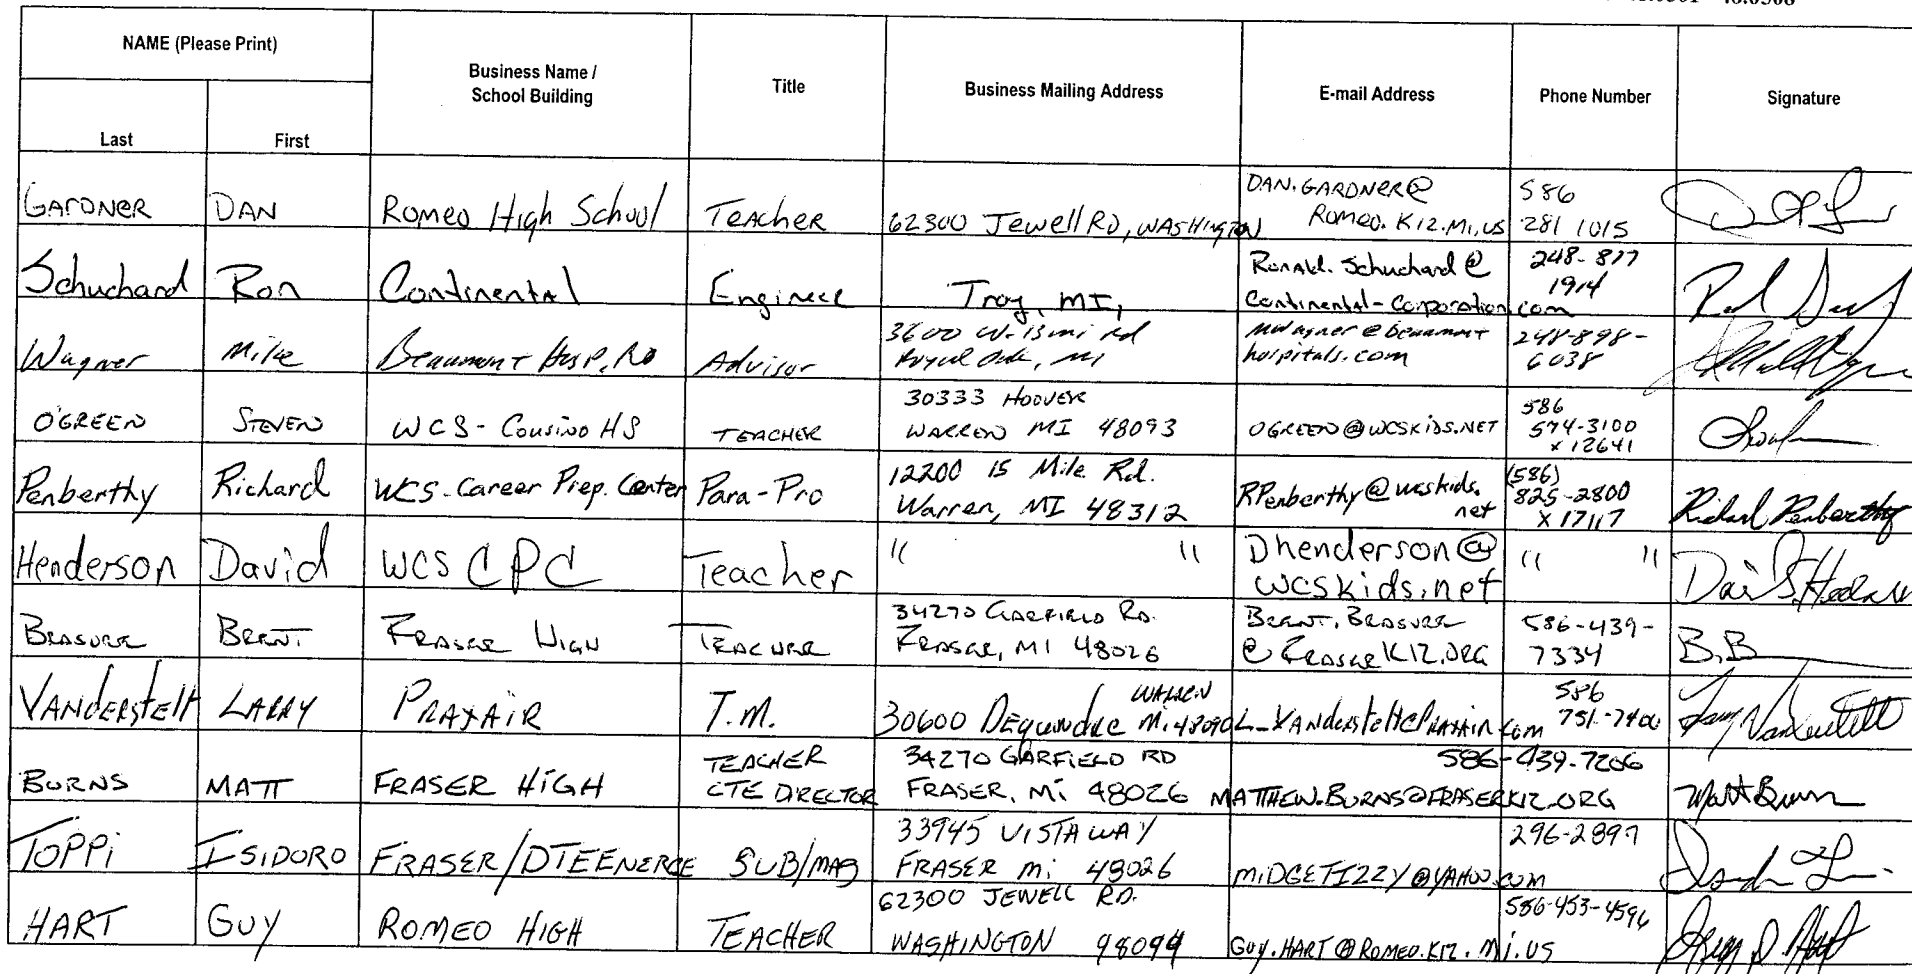 NAME (Please Print)
Business Name /
School Building
Title
Business Mailing Address
E-mail Address
Phone Number
Signature
Last
First
GARDNER DAN Romeo High School Teacher 62300 Jewell RD, WASHINGTON
DAN.GARDNER@
ROMEO.K12.MI.US
586
281 1015
Schuchard Ron Continental Engineer Troy, MI,
Ronald.Schuchard@
Continental-Corporation.com
248-877
1914
Wagner Mike Beaumont Hosp. RO Advisor
3600 W. 13 mi rd
Royal Oak, MI
mwagner@beaumont
hospitals.com
248-898-
6038
O'GREEN STEVEN WCS - Cousino HS TEACHER
30333 HOOVER
WARREN MI 48093
OGREEN@WCSKIDS.NET
586
574-3100
x 12641
Penberthy Richard WCS-Career Prep. Center Para-Pro
12200 15 Mile Rd.
Warren, MI 48312
RPenberthy@wcskids.
net
(586)
825-2800
X 17117
Richard Penberthy
Henderson David WCS CPC Teacher
" "
Dhenderson@
wcskids.net
" "
BRASURE BRENT FRASER HIGH TEACHER
34270 GARFIELD RD.
FRASER, MI 48026
BRENT.BRASURE
@FRASERK12.ORG
586-439-
7334
B.B
VANDERSTELT LARRY PRAXAIR T.M.
WARREN
30600 DEQUINDRE Mi. 48090
L_VANDERSTELT@PRAXAIR.com
586
751-7400
Larry Vanderstelt
BURNS MATT FRASER HIGH
TEACHER
CTE DIRECTOR
34270 GARFIELD RD
FRASER, Mi 48026
586-439-7206
MATTHEW.BURNS@FRASERK12.ORG
Matt Burns
TOPPi ISIDORO FRASER/DTEENERGE SUB/MAB
33945 VISTA WAY
FRASER Mi 48026
MIDGETIZZY@YAHOO.COM
296-2897
HART GUY ROMEO HIGH TEACHER
62300 JEWELL RD.
WASHINGTON 98094
GUY.HART@ROMEO.K12.Mi.US
586-453-4596